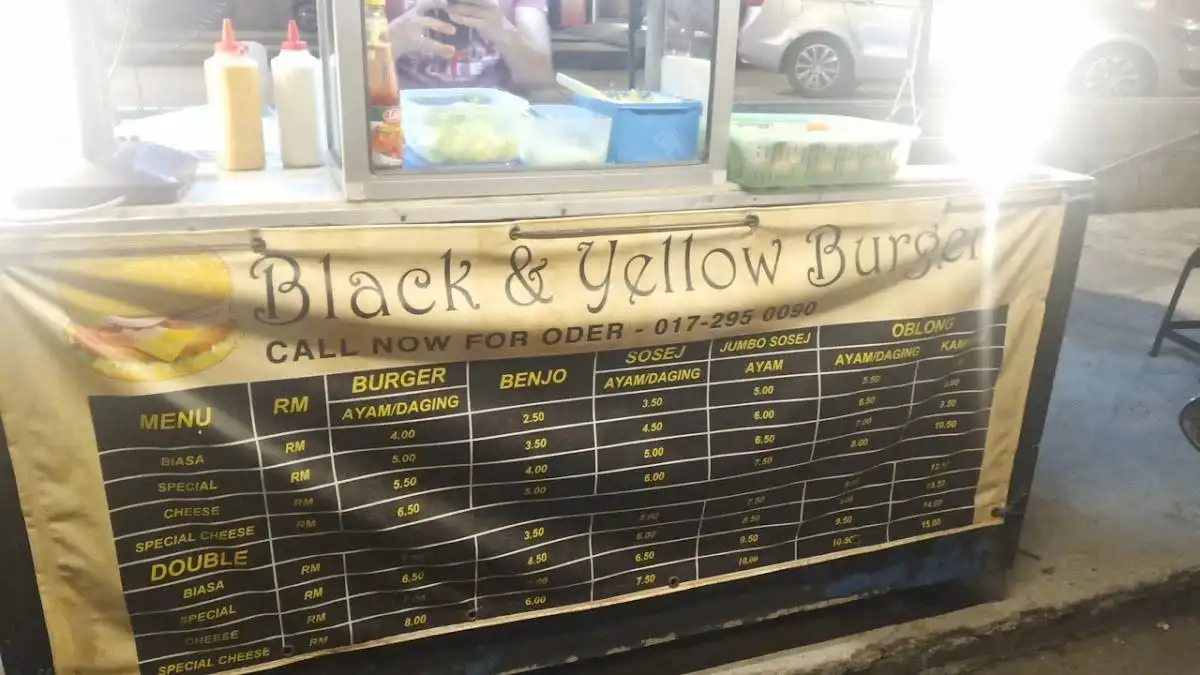 Black & Yellow Burger
CALL NOW FOR ODER - 017-295 0090
MENU RM BURGER AYAM/DAGING BENJO SOSEJ AYAM/DAGING JUMBO SOSEJ AYAM OBLONG AYAM/DAGING
BIASA RM 4.00 2.50 3.50 5.00 5.50
SPECIAL RM 5.00 3.50 4.50 6.00 6.50
CHEESE RM 5.50 4.00 5.00 6.50 7.00 9.50
SPECIAL CHEESE RM 6.50 5.00 6.00 7.50 8.00 10.50
DOUBLE
BIASA RM 3.50 7.50
SPECIAL RM 6.50 4.50 6.00 8.50 13.50
CHEESE RM 6.50 9.50 9.50 14.00
SPECIAL CHEESE RM 8.00 6.00 7.50 10.00 10.50 15.00